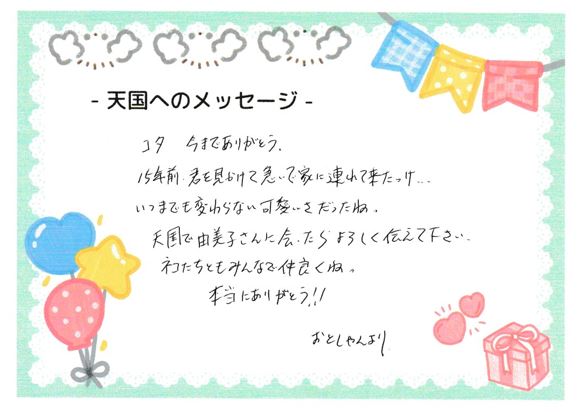 - 天国へのメッセージ -
コタ 今までありがとう。
15年前、君を見かけて急いで家に連れて来たっけ...
いつまでも変わらない可愛いさだったね。
天国で由美子さんに会ったらよろしく伝えて下さい
ネコたちともみんなで仲良くね。
本当にありがとう!!
おとしゃんより